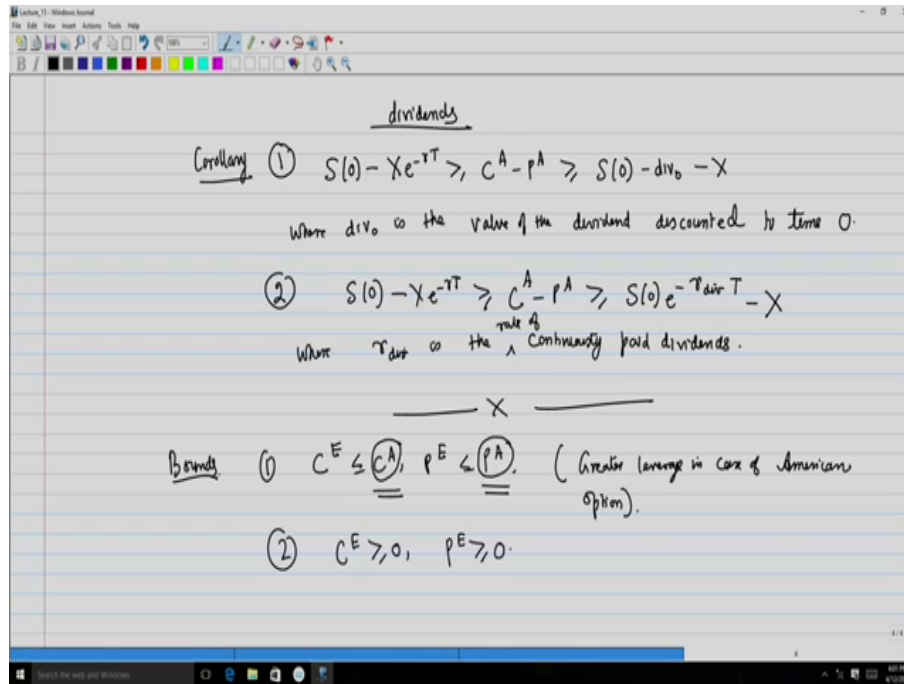 Lecture_15 - Windows Journal
File Edit View Insert Actions Tools Help
B I
dividends
Corollary ① S(0) - Xe^{-rT} ⩾ C^A - P^A ⩾ S(0) - div₀ - X
where div₀ is the value of the dividend discounted to time 0.
② S(0) - Xe^{-rT} ⩾ C^A - P^A ⩾ S(0)e^{-r_{div}T} - X
where r_{div} is the rate of continuously paid dividends.
X
Bounds ① C^E ≤ C^A, P^E ≤ P^A. (Greater leverage in case of American
option).
② C^E ⩾ 0, P^E ⩾ 0.
Search the web and Windows